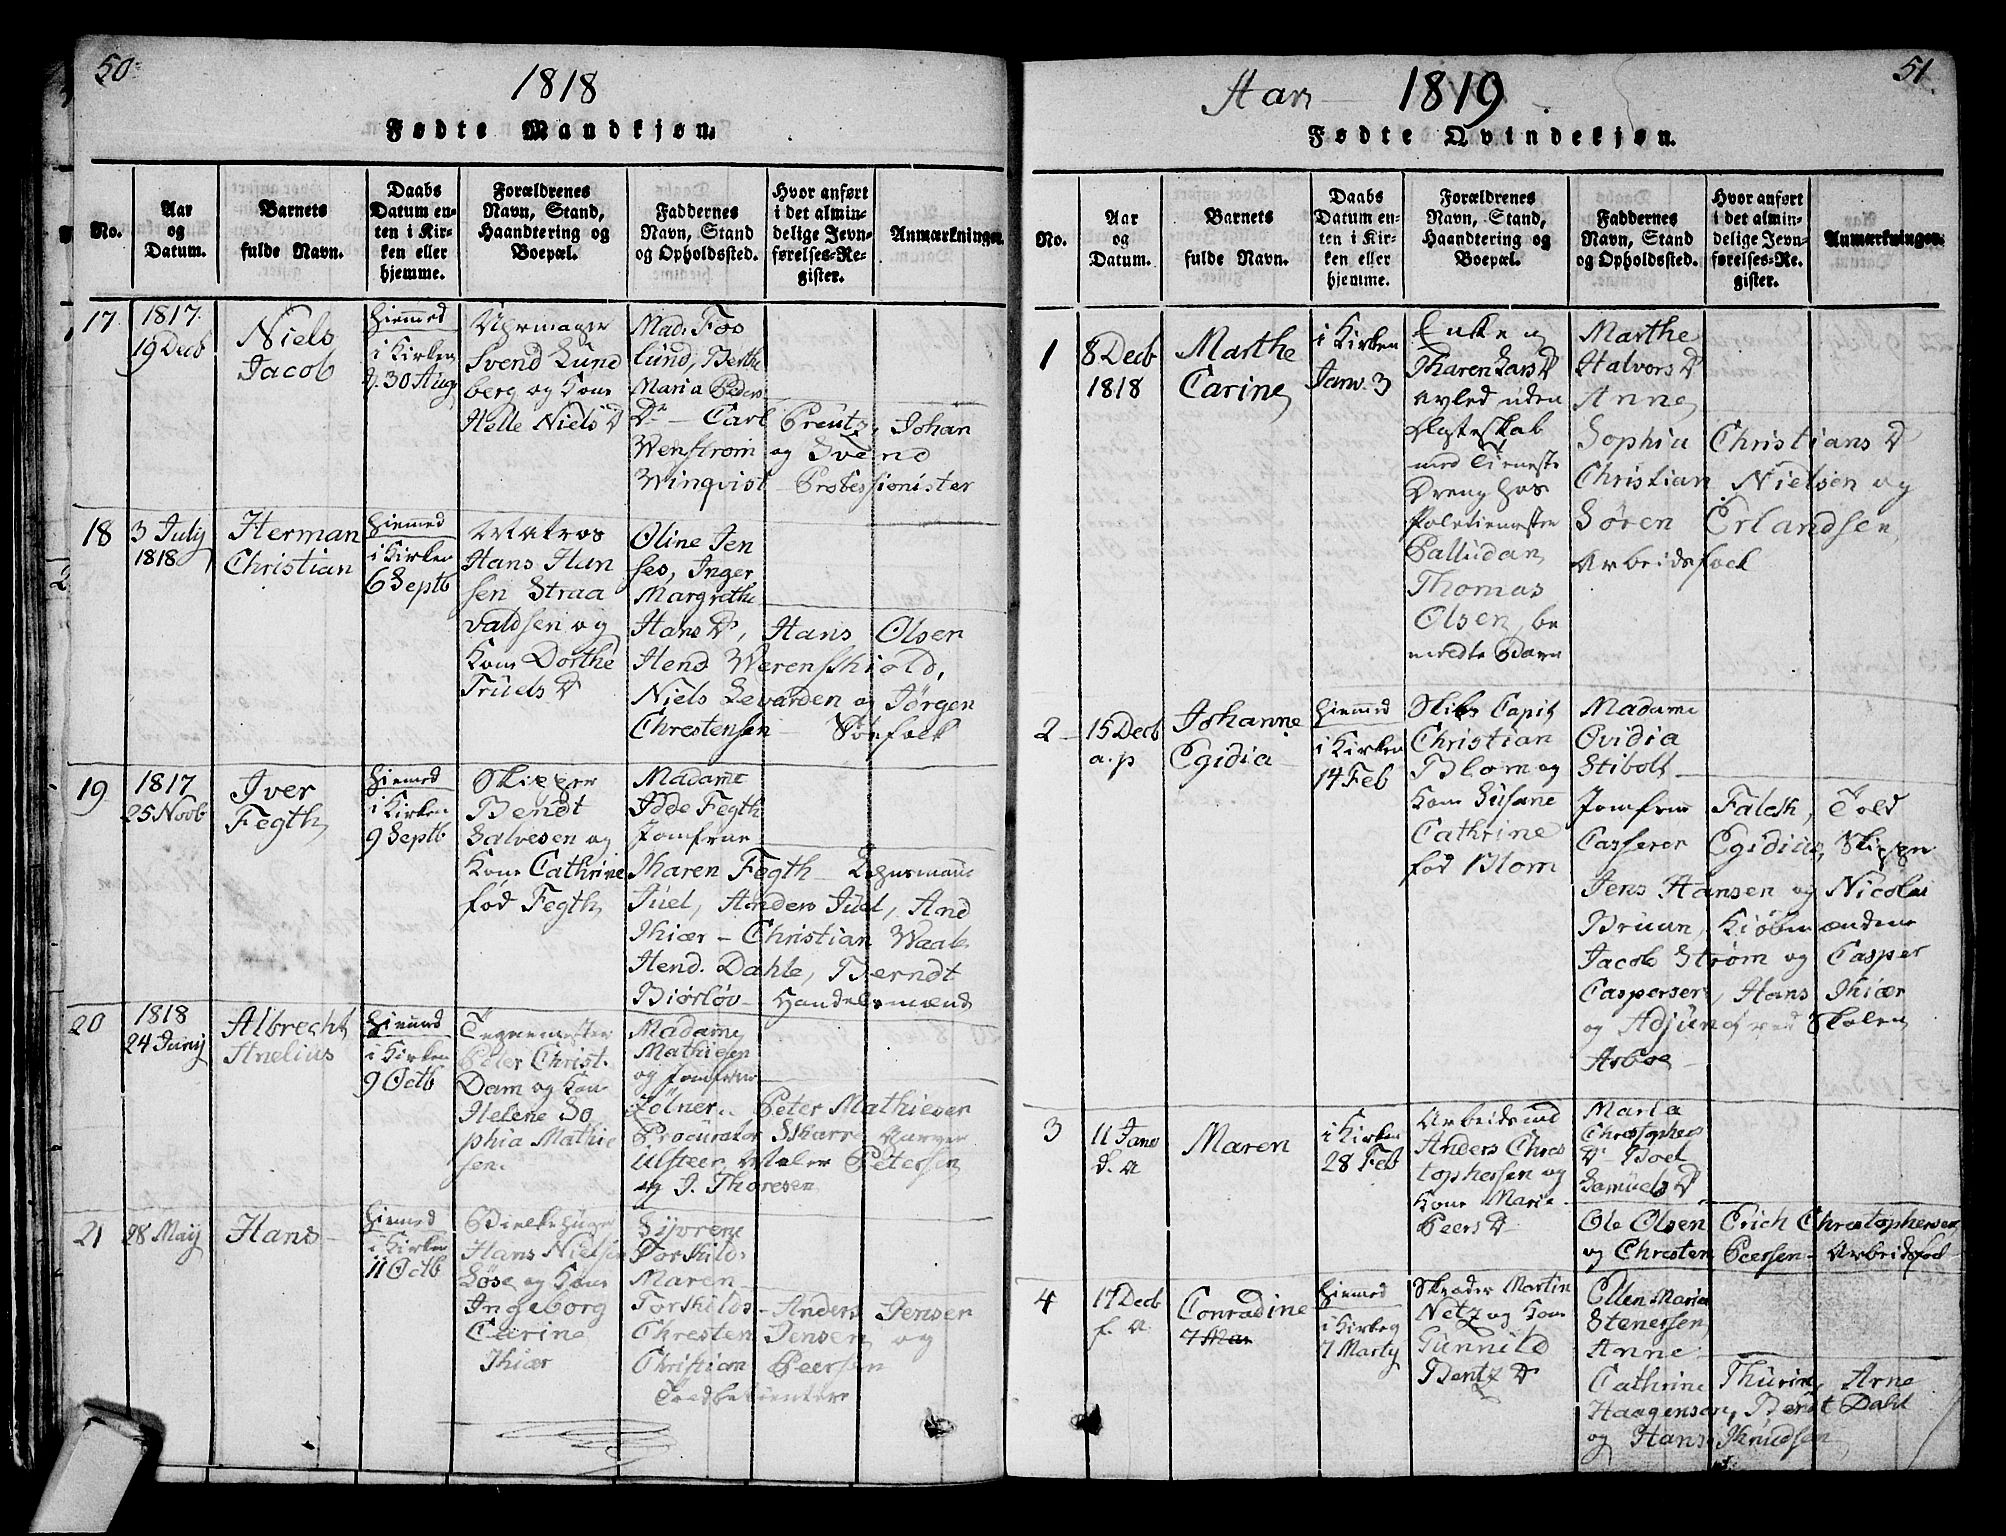 50.
1818
Fødte Mandkjøn.
No.
Aar
og
Datum.
Barnets
fulde Navn.
Daabs
Datum en-
ten i Kir-
ken eller
hjemme.
Forældrenes
Navn, Stand,
Haandtering og
Boepæl.
Faddernes
Navn, Stand
og Opholdssted.
Hvor anført
i det almin-
delige Jevn-
førelses-Re-
gister.
Anmærkninger.
17
1817
19 Decb
Niels
Jacob
Hiemed
i Kirken
d. 30 Aug
Uhrmager
Svend Lund
berg og Kone
Helle Niels D
Mad. Fos
lund, Berthe
Maria Peders
Dr - Carl Preutz, Johan
Wenstrom og Svend
Winqvist - Professionister
18
3 July
1818
Herman
Christian
Hiemed
i Kirken
6 Septb
Matros
Hans Han
sen Straa
valdsen og
Kone Dorthe
Truels D
Oline Jen
ses, Inger
Margrethe
Hans D, Hans Olsen
Hend Werenskiold,
Niels Levorden og Jørgen
Chrestensen - Søefolk
19
1817
25 Novb
Iver
Fegth
Hiemed
i Kirken
9 Septb
Skipper
Bendt
Salvesen og
Kone Cathrine
fød Fegth
Madame
Idde Fegth
Jomfrue
Karen Fegth - Lehnsmand
Juel, Anders Juel, And
Kiær - Christian Waale
Hend. Dahle, Berndt
Biørløv - Handelsmænd
20
1818
24 Juny
Albrecht
Anelius
Hiemed
i Kirken
9 Octb
Tegnemester
Peter Christ.
Dam og Kone
Helene So
phia Mathie
sen.
Madame
Mathiesen
og Jomfrue
Zølner. Peter Mathiesen
Procurator Skarre Farver
Ulsteen, Maler Petersen
og J. Thoresen
21
28 May
Hans
Hiemed
i Kirken
11 Octb
Hans Nielsen
Løse og Kone
Ingeborg
Carine
Kiær
Syvrene
Torkild:
Maren
Torkilds - Anders Jensen
Chresten Jensen og
Christian Peersen
51.
Aar 1819
Fødte Qvindekjøn.
No.
Aar
og
Datum.
Barnets
fulde Navn.
Daabs
Datum en-
ten i Kir-
ken eller
hjemme.
Forældrenes
Navn, Stand,
Haandtering og
Boepæl.
Faddernes
Navn, Stand
og Opholdssted.
Hvor anført
i det almin-
delige Jevn-
førelses-Re-
gister.
Anmærkninger.
1
8 Decb
1818
Marthe
Carine
i Kirken
Janv. 3
Enke og
Karen Lars D
avled uden
Ægteskab
med Tieneste
Dreng hos
Palludan
Thomas
Olsen, be
meldte Barn
Marthe
Halvors D
Anne
Sophia Christians D
Christian Nielsen og
Søren Erlandsen,
Arbeidsfolk
2
15 Decb
a.p
Johanne
Egidia
Hiemed
i Kirken
14 Feb
Skibs Capit
Christian
Blom og
Kone Susane
Cathrine
fød Blom
Madame
Ovidia
Stibolt
Jomfrue Falck, Told
Casserer Egidius, Skipper
Jens Hansen og Nicolai
Bruun, Kiøbmændene
Jacob Strøm og Casper
Caspersen, Hans Kiær
og Adjunct ved Skolen
Arboe
3
11 Janv
d. a
Maren
i Kirken
28 Feb
Arbeidsmd
Anders Chres
tophersen og
Kone Marie
Peers D
Maria
Chrestophers
D Boel
Samuels D
Ole Olsen Erich Chrestophersen
og Chresten Peersen - Arbeidsfolk
4
17 Decb
f. a
Conradine
7 Mar
Hiemed
i Kirken
7 Marty
Skræder Martin
Netz og Kone
Gunnild
Bentz D
Ellen Maria
Stenersen
Anne
Cathrine Thurin, Arne
Haagensen, Berdt Dahl
og Hans Knudsen